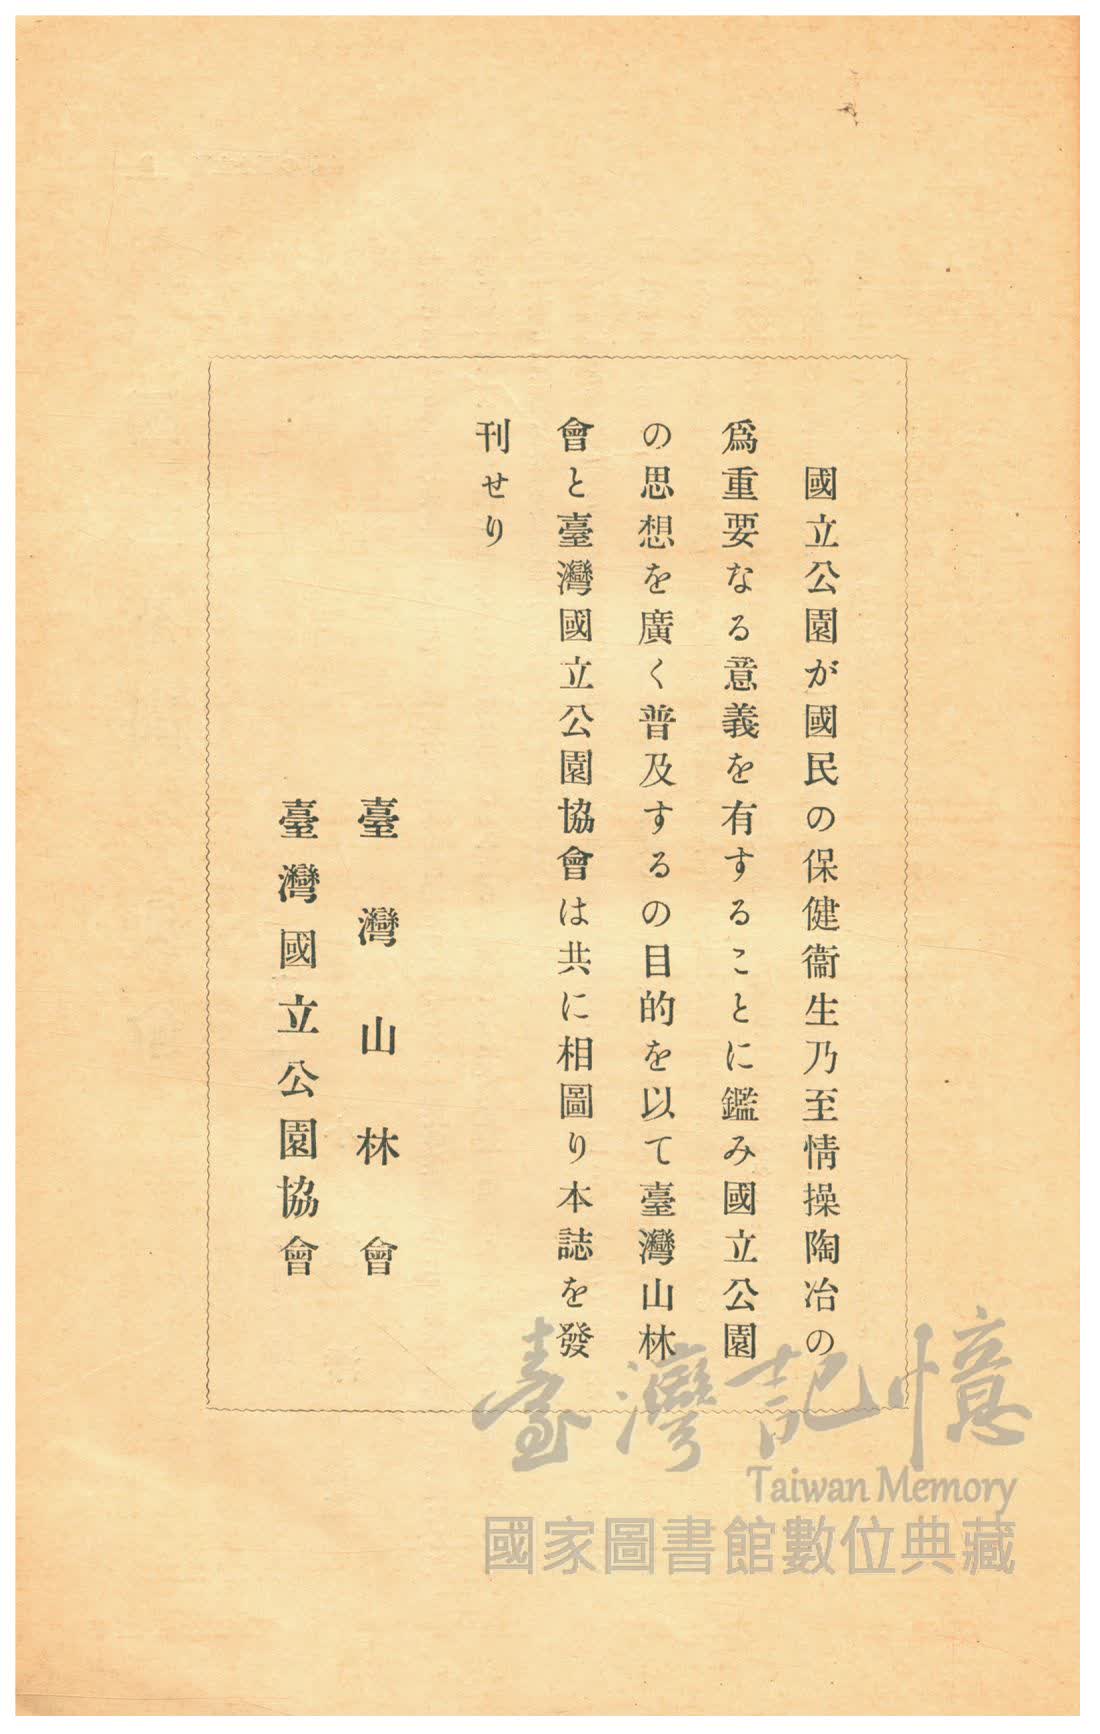 國立公園が國民の保健衞生乃至情操陶冶の
爲重要なる意義を有することに鑑み國立公園
の思想を廣く普及するの目的を以て臺灣山林
會と臺灣國立公園協會は共に相圖り本誌を發
刊せり
臺灣山林會
臺灣國立公園協會
臺灣記憶
Taiwan Memory
國家圖書館數位典藏